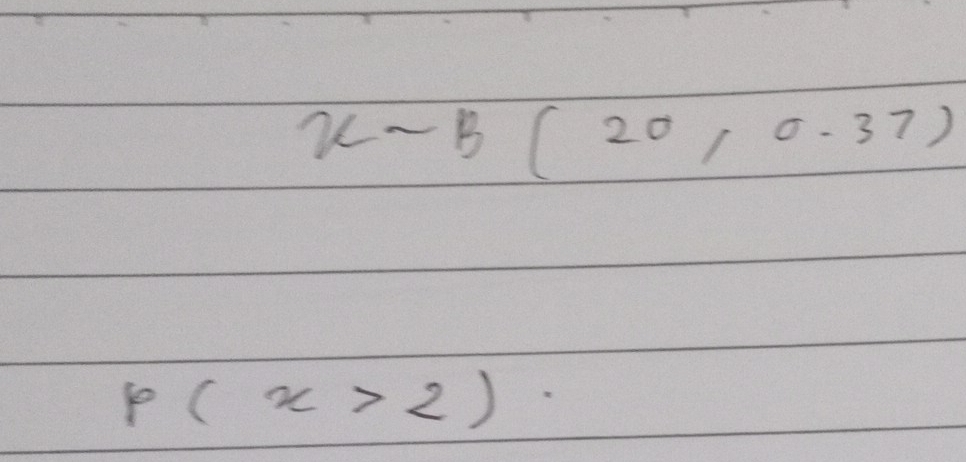 x ~ B ( 20 , 0.37 )
P ( x > 2 ) .